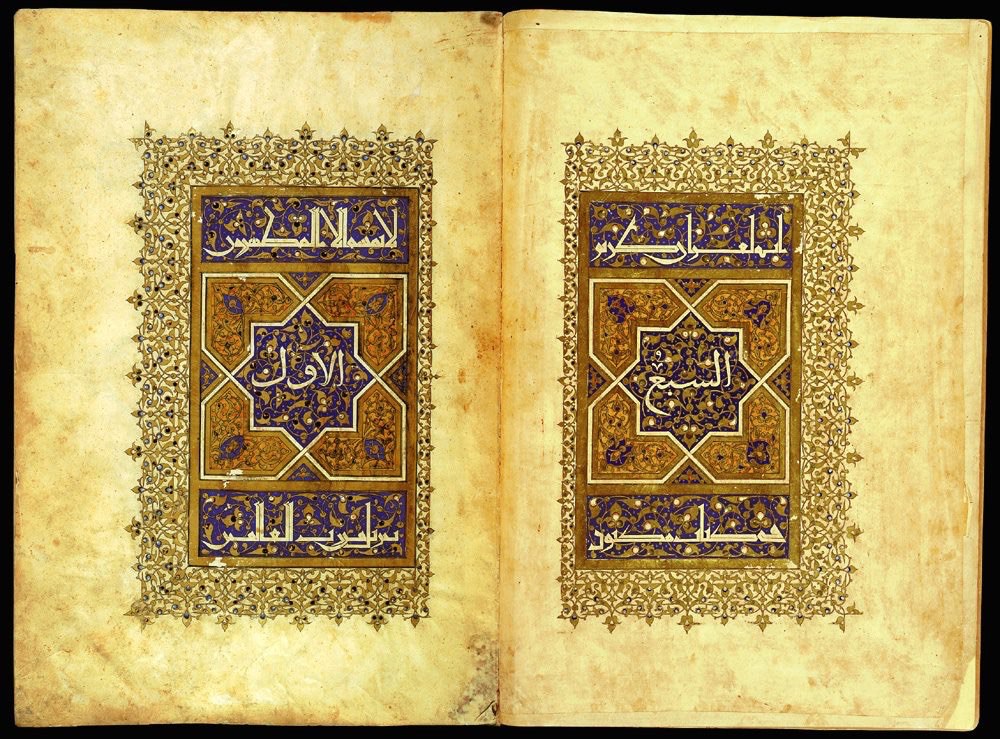 انه لقران كريم
السبع
في كتاب مكنون
لا يمسه الا المطهرون
الاول
تنزيل من رب العالمين